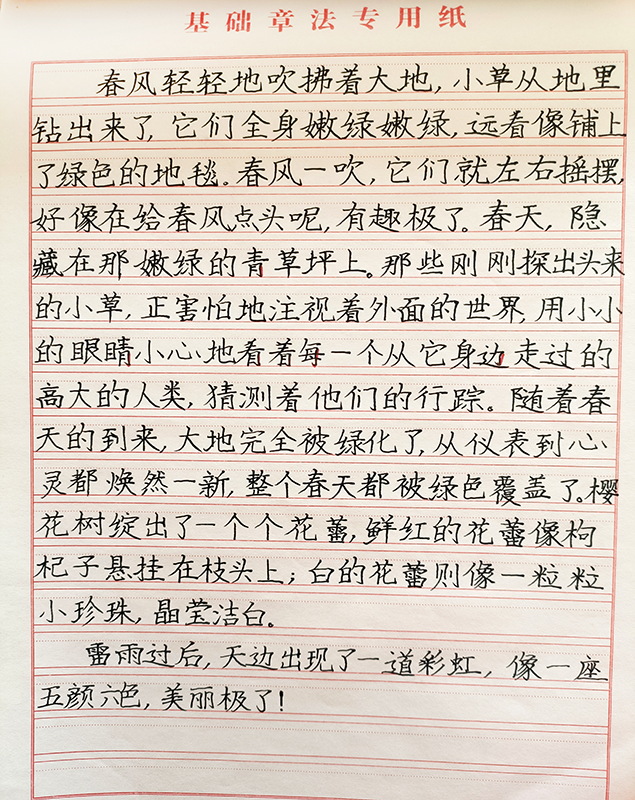 基础章法专用纸
春风轻轻地吹拂着大地,小草从地里
钻出来了,它们全身嫩绿嫩绿,远看像铺上
了绿色的地毯。春风一吹,它们就左右摇摆,
好像在给春风点头呢,有趣极了。春天,隐
藏在那嫩绿的青草坪上。那些刚刚探出头来
的小草,正害怕地注视着外面的世界,用小小
的眼睛小心地看着每一个从它身边走过的
高大的人类,猜测着他们的行踪。随着春
天的到来,大地完全被绿化了,从仪表到心
灵都焕然一新,整个春天都被绿色覆盖了。樱
花树绽出了一个个花蕾,鲜红的花蕾像枸
杞子悬挂在枝头上;白的花蕾则像一粒粒
小珍珠,晶莹洁白。
雷雨过后,天边出现了一道彩虹,像一座
五颜六色,美丽极了!